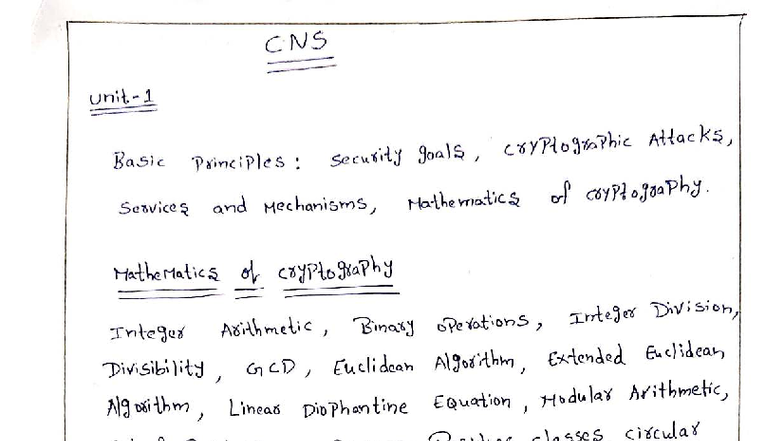 CNS
Unit-1
Basic Principles: Security goals, Cryptographic Attacks,
Services and Mechanisms, Mathematics of cryptography.
Mathematics of cryptography
Integer Arithmetic, Binary operations, Integer Division,
Divisibility, GCD, Euclidean Algorithm, Extended Euclidean
Algorithm, Linear Diophantine Equation, Modular Arithmetic,
classes circular